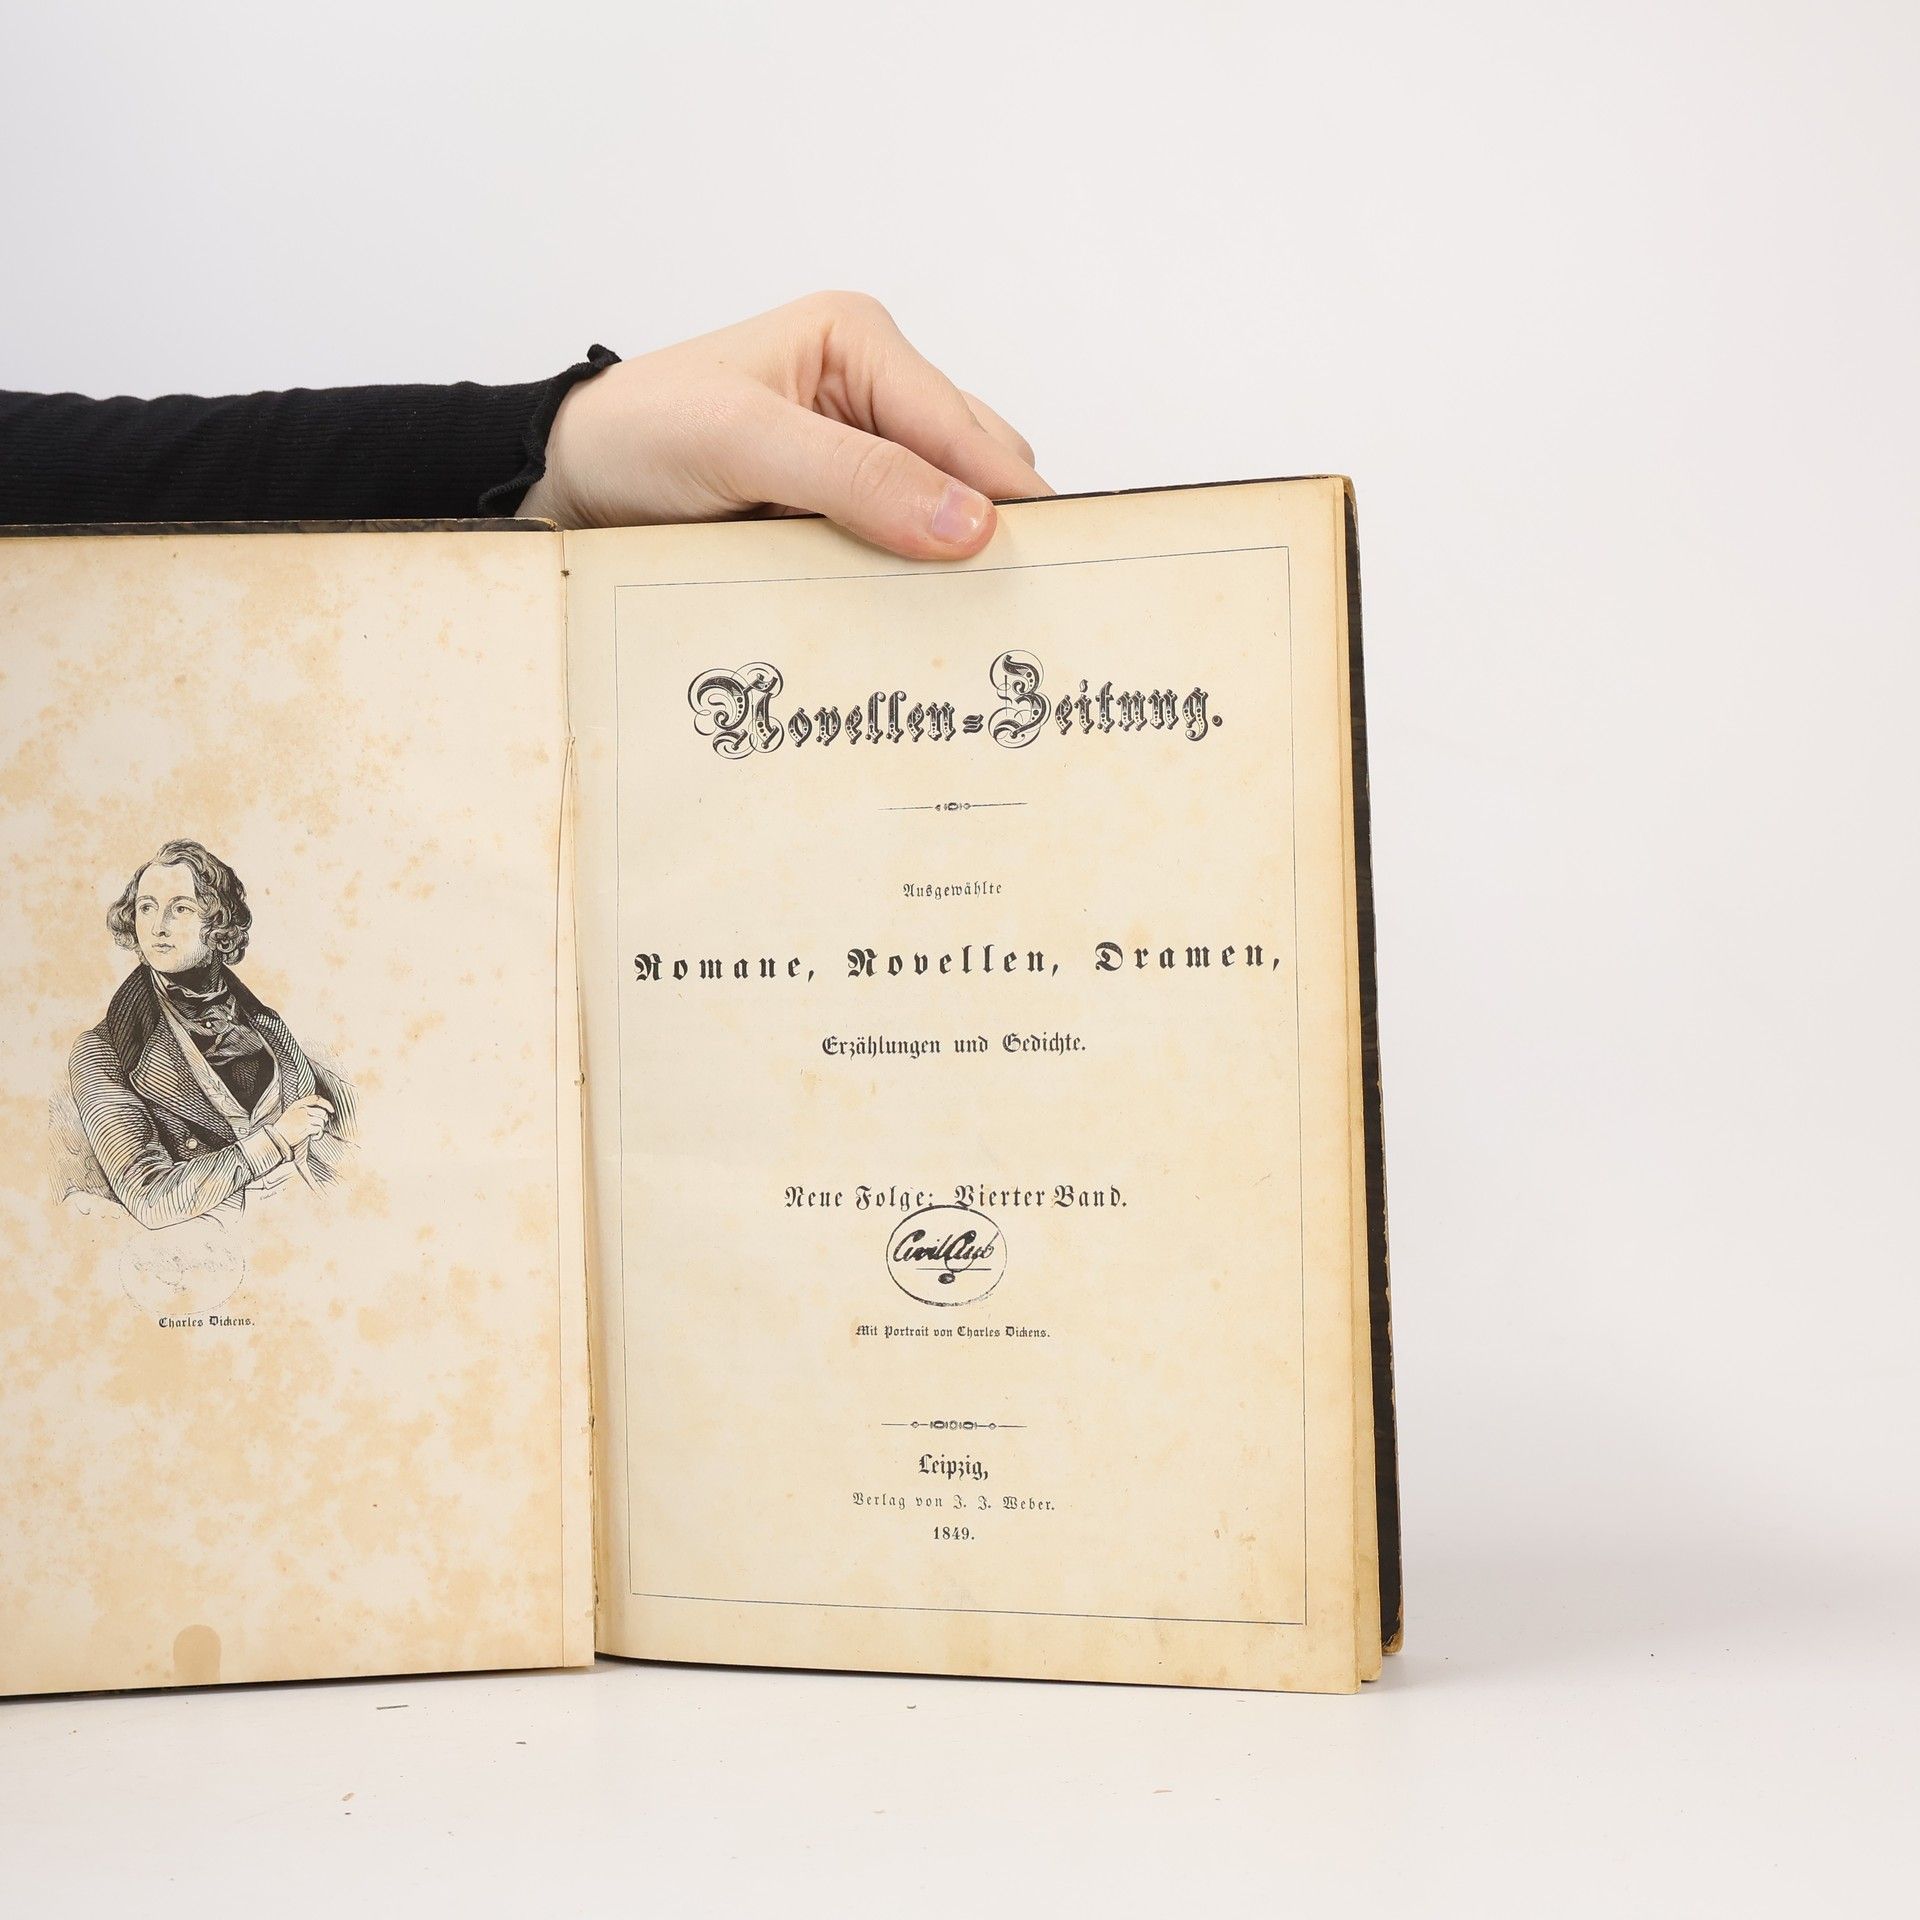 Charles Dickens.
Novellen=Zeitung.
Ausgewählte
Romane, Novellen, Dramen,
Erzählungen und Gedichte.
Neue Folge: Vierter Band.
Civil Club
Mit Portrait von Charles Dickens.
Leipzig,
Verlag von J. J. Weber.
1849.